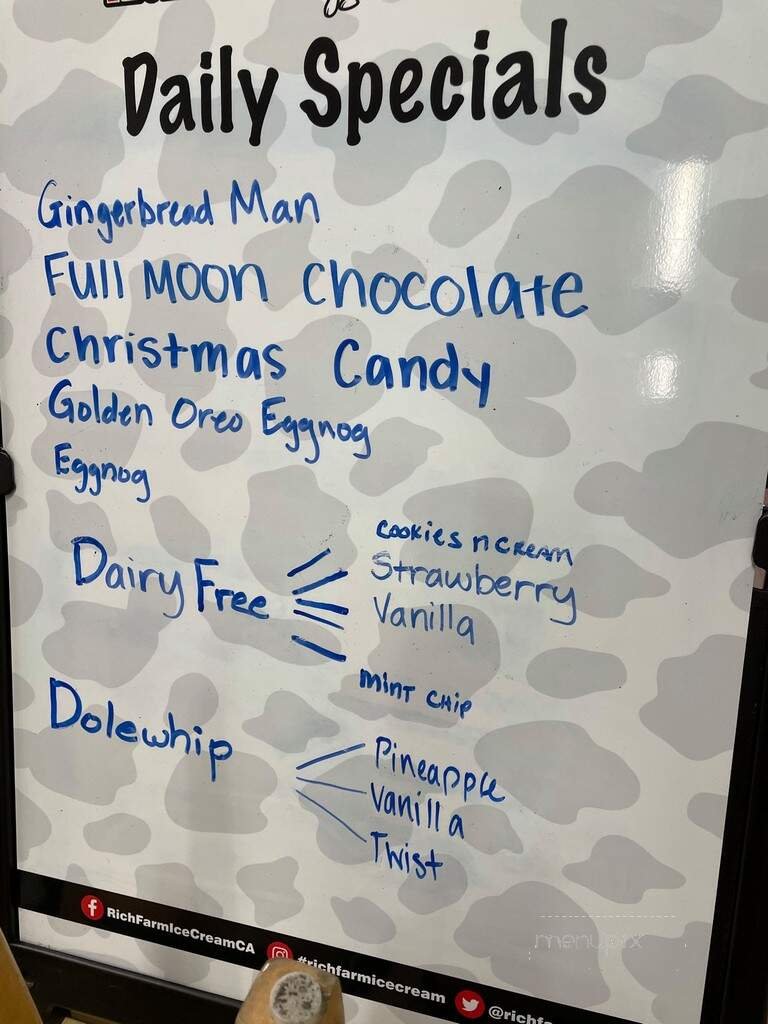 Daily Specials
Gingerbread Man
Full Moon Chocolate
Christmas Candy
Golden Oreo Eggnog
Eggnog
Dairy Free
Cookies n Cream
Strawberry
Vanilla
Mint Chip
Dolewhip
Pineapple
Vanilla
Twist
RichFarmIceCreamCA
#richfarmicecream
menupix